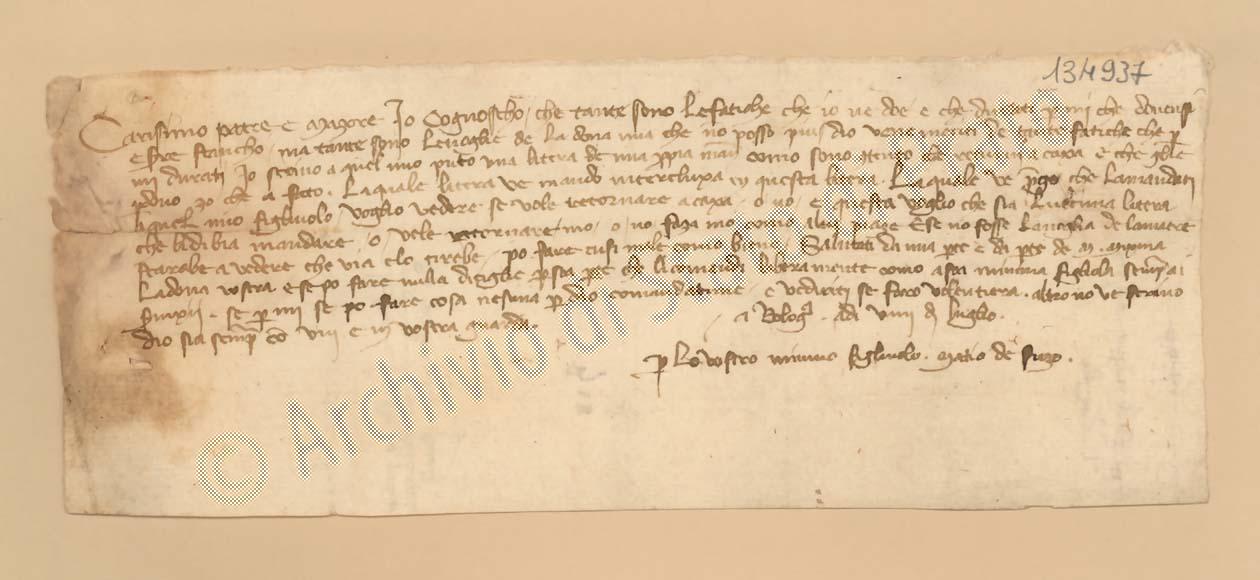 134937
Carissimo patre e mazore Io Cognoscho, che tante sono Le fatiche che io ve doe e che durati p mi che dovressi
esere stancho, ma tante sono Le voglie de La dona mia che no posso piu, dio ve ne meriti de tante fatiche che p
mi durati Io scrivo a quel mio puto una litera de mia ppia man como sono retornare a caxa e che gle
pdono zo che a fato. La quale litera ve mando interchiuxa in questa litera. La quale ve pgo che La mandati
a quel mio figliuolo, voglio vedere se vole retornare a caxa, o no, e questa voglio che sia L'ultima litera
che li dibia mandare, o vole retornare mo, o no faza mo como a lui piaze E se no fosse La voglia de
starebe a vedere che via elo tirebe, po fare cusi male como bene. Salutati da mia pte e da pte de m.
La dona vostra e se po fare nulla diziglie p sta pte che li comandi liberamente como a soi minimi figlioli
se p mi se po fare cosa nesuna p dio comandatime, e vederiti se faro volentiera. altro no ve scrivo
Dio sia semp co vui e in vostra guarda.
a Bolog. adi VIIII d luglio.
p Lo vostro minimo figliuolo. Matio de
© Archivio di Stato di Prato